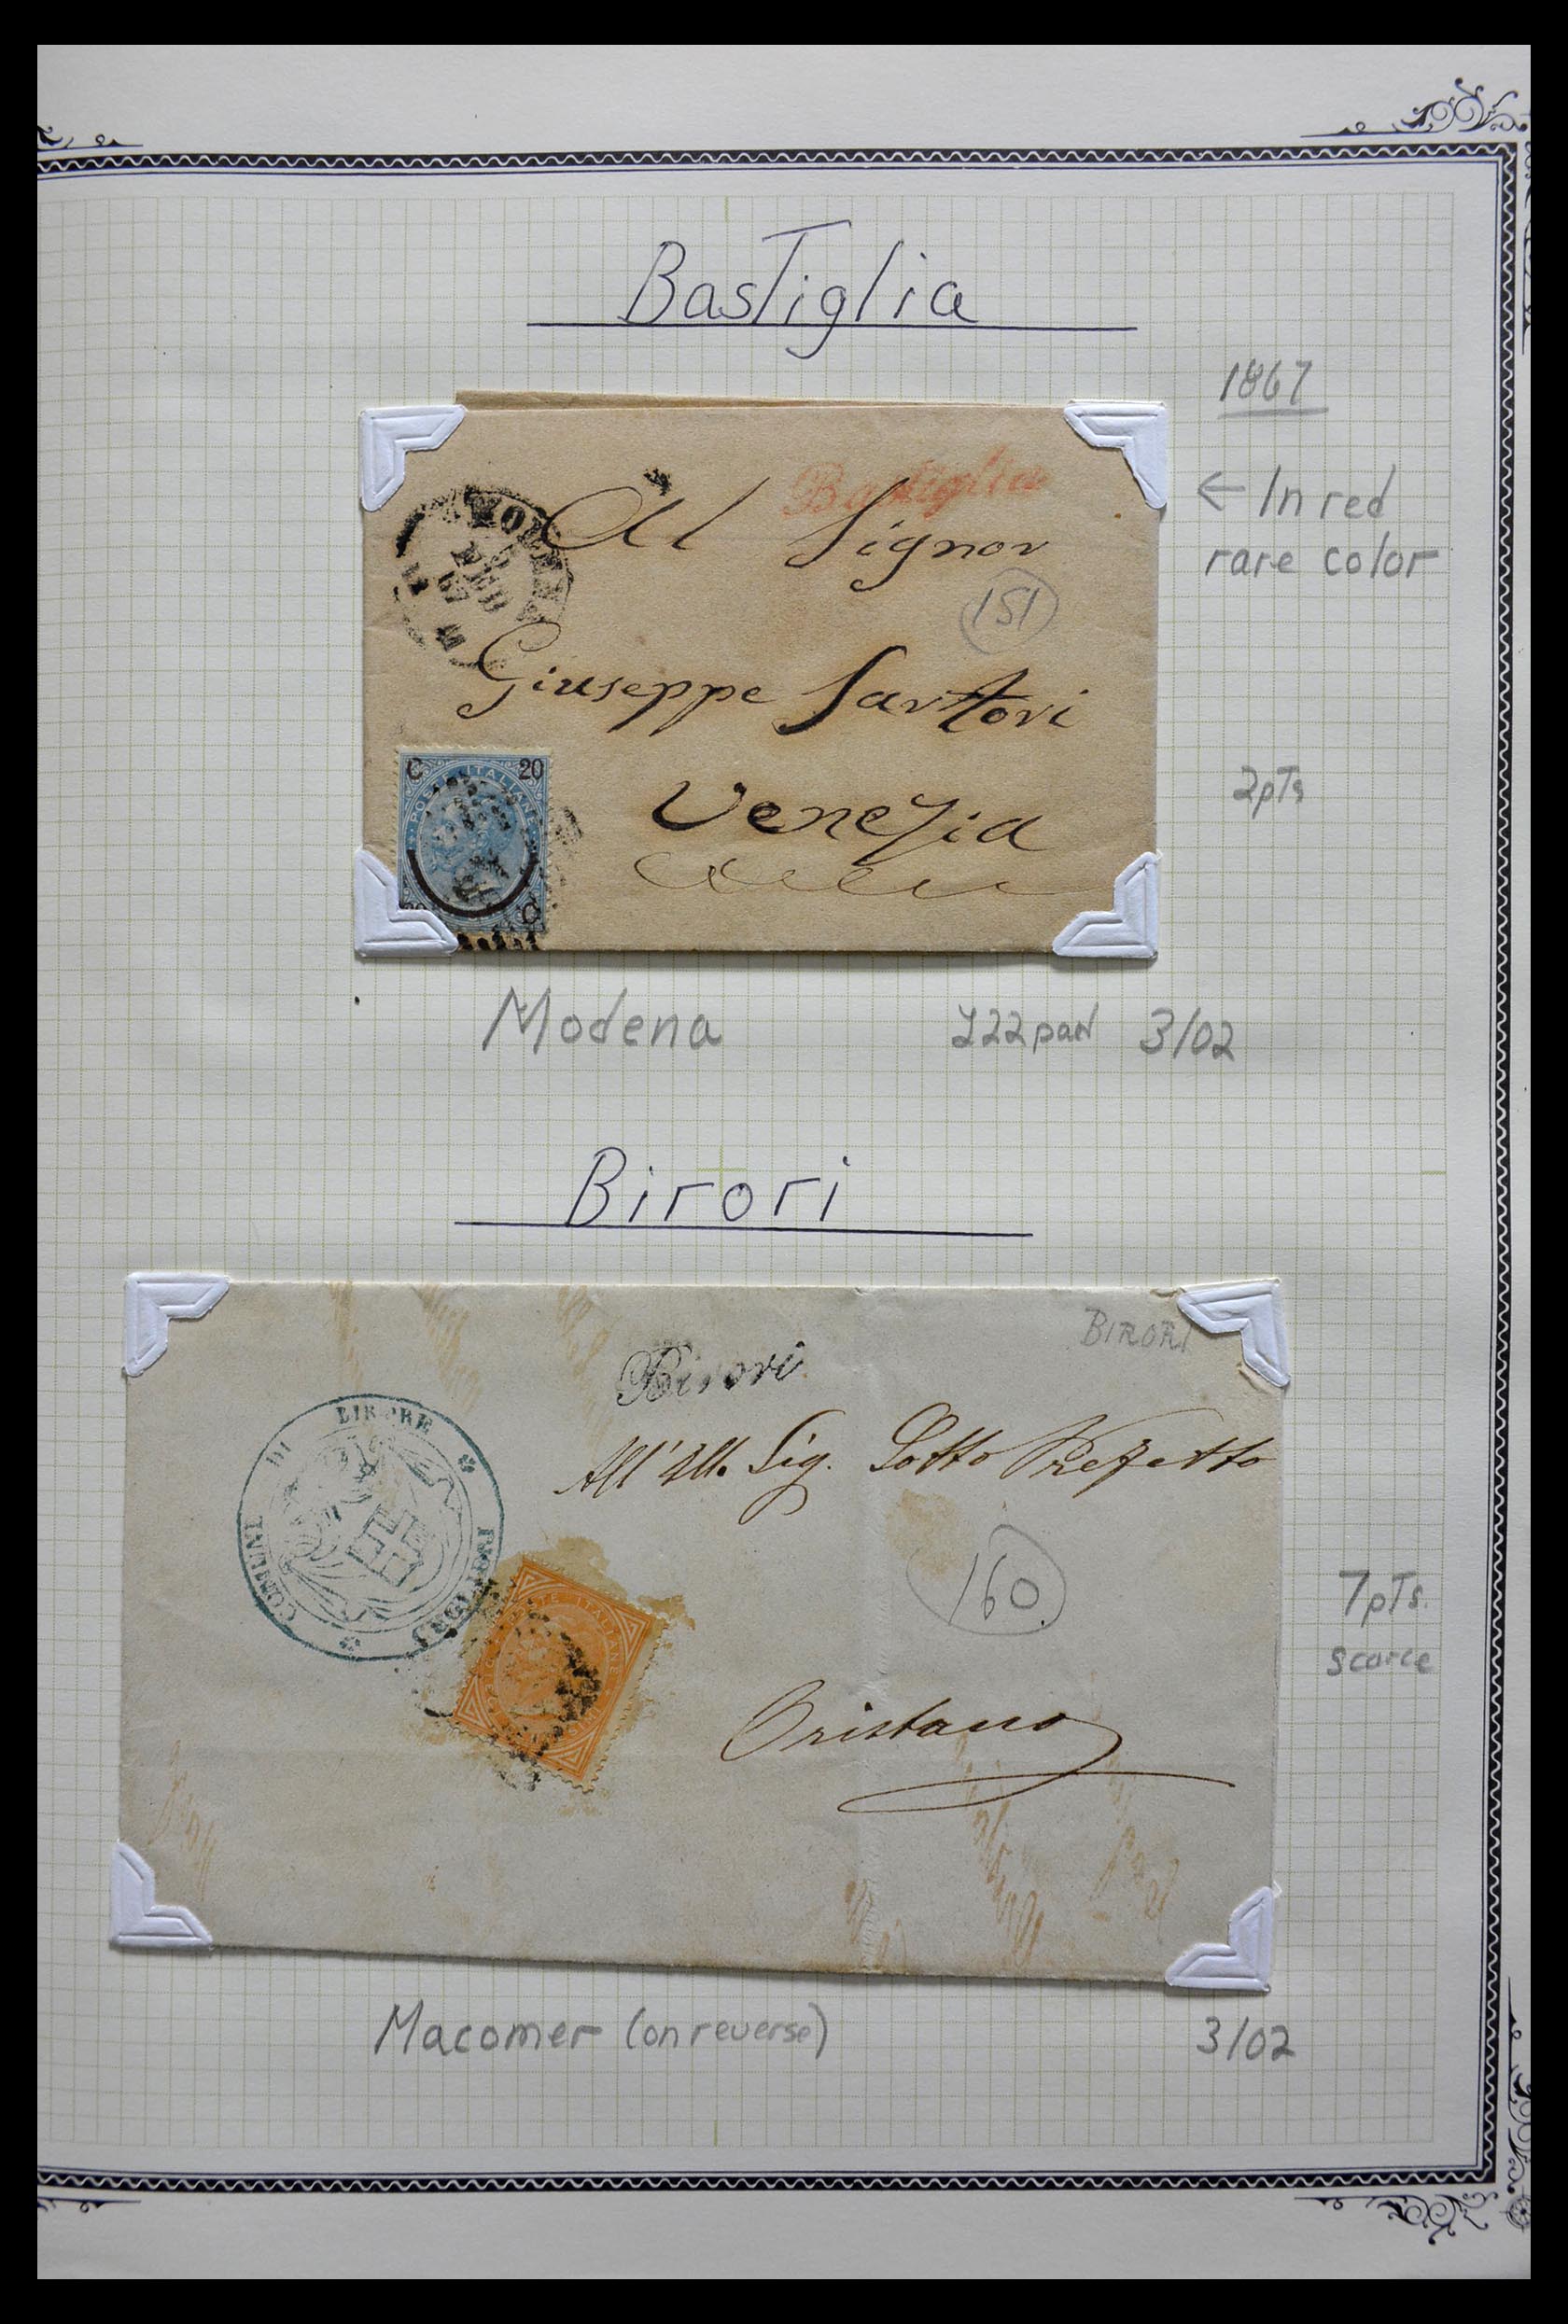 Bastiglia
1867
Bastiglia
← In red
rare color
Al Signor
151
Giuseppe Sartori
2pts
C 20
POSTE ITALIANE
C
Venezia
Modena
3/02
Birori
BIRORI
Birori
DI
All'Ill. Sig. Sotto Prefetto
COMUNALE
160
7pTs.
scarce
POSTE ITALIANE
Oristano
Macomer (on reverse)
3/02